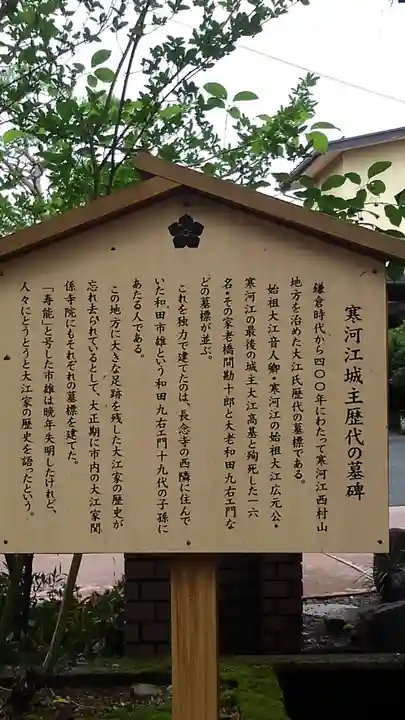 寒河江城主歴代の墓碑
鎌倉時代から四〇〇年にわたって寒河江西村山
地方を治めた大江氏歴代の墓標である。
始祖大江音人卿・寒河江の始祖大江広元公・
寒河江の最後の城主大江高基と殉死した二六
名・その家老橋間勘十郎と大老和田九右エ門な
どの墓標が並ぶ。
これを独力で建てたのは、長念寺の西隣に住んで
いた和田市雄という和田九右エ門十九代の子孫に
あたる人である。
この地方に大きな足跡を残した大江家の歴史が
忘れ去られているとして、大正期に市内の大江家関
係寺院にもそれぞれの墓標を建てた。
「寿能」と号した市雄は晩年失明したけれど、
人々にとうとうと大江家の歴史を語ったという。